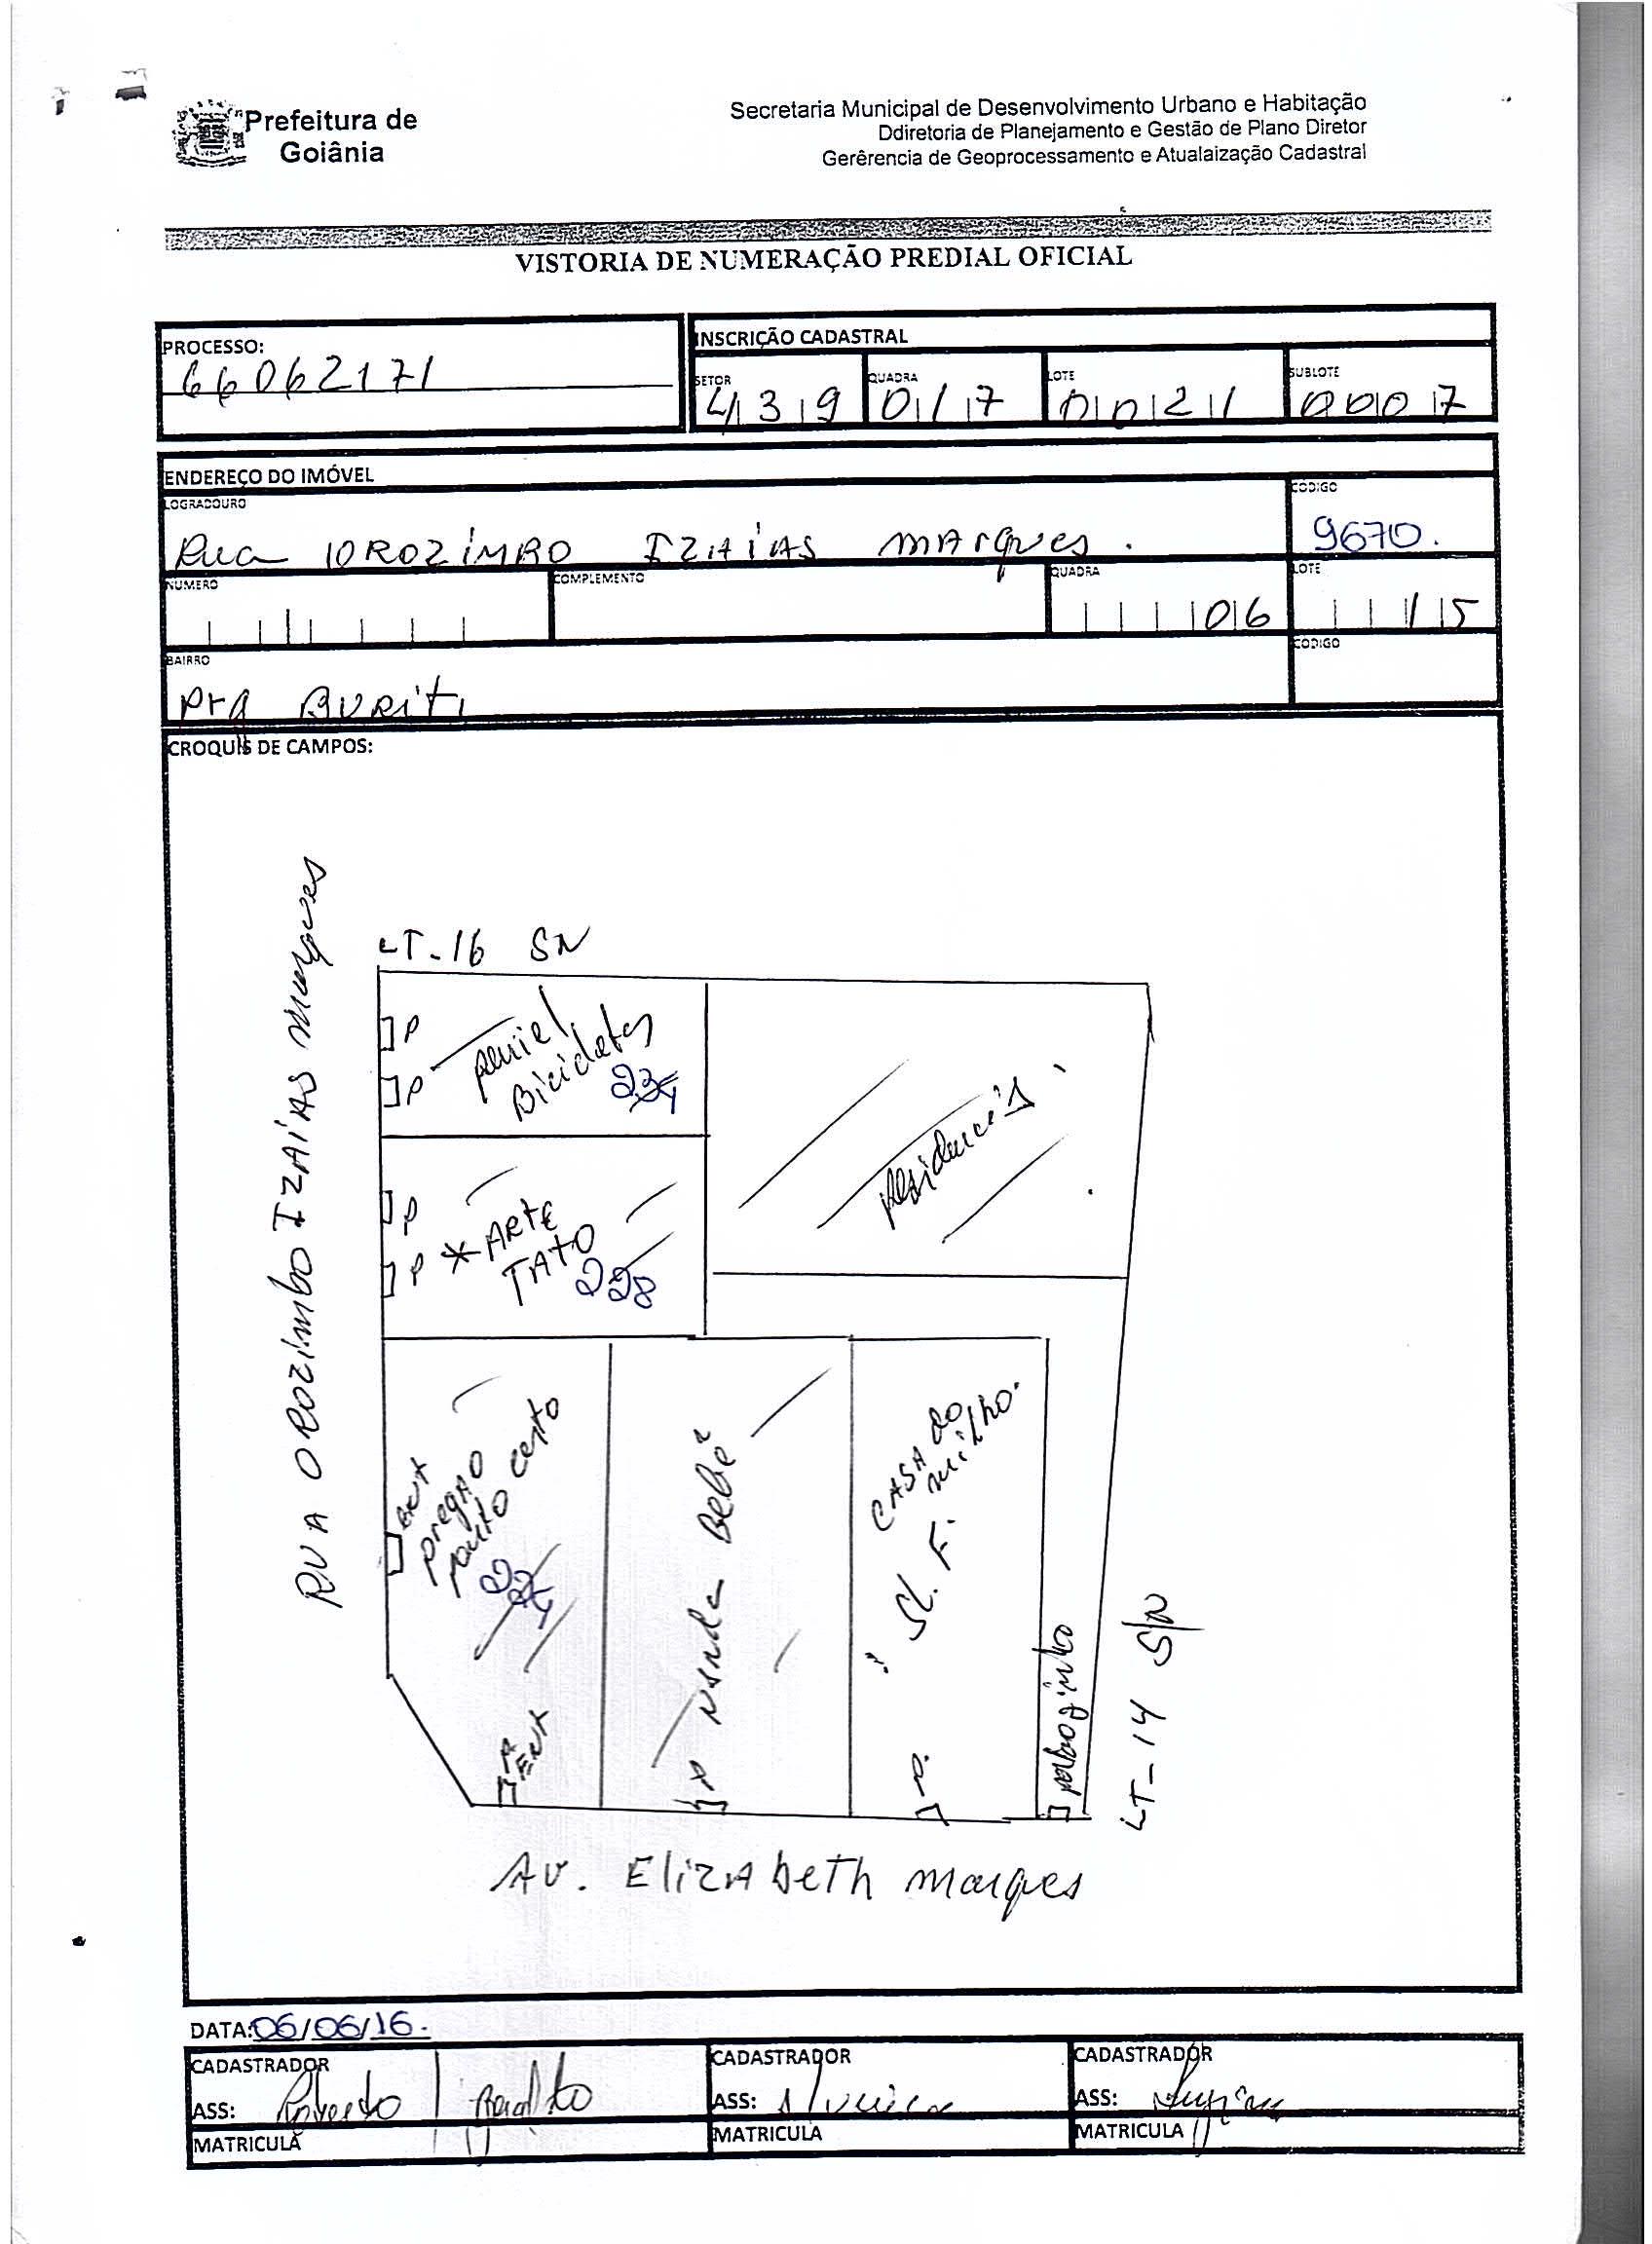 Prefeitura de
Goiânia
Secretaria Municipal de Desenvolvimento Urbano e Habitação
Ddiretoria de Planejamento e Gestão de Plano Diretor
Gerêrencia de Geoprocessamento e Atualaização Cadastral
VISTORIA DE NUMERAÇÃO PREDIAL OFICIAL
PROCESSO:
66062171
INSCRIÇÃO CADASTRAL
SETOR QUADRA LOTE SUBLOTE
439 017 0021 0007
ENDEREÇO DO IMÓVEL
LOGRADOURO CODIGO
Rua OROZiMBO IZAiAS MArques. 9670.
NUMERO COMPLEMENTO QUADRA LOTE
06 15
BAIRRO CODIGO
Prq BURiti
CROQUIS DE CAMPOS:
RUA OROZiMBO IZAiAS Marques
LT-16 SN
P
P
peniel
Bicicletas
234
residencia
P
P
*ARTE
TATO
228
ENX
pregAO
ponto certo
224
P
ENX
P
NANda Bebê
CASA do
milho.
SL. F.
P.
LT-14 S/N
AV. ElizAbeTH marques
DATA: 06/06/16.
CADASTRADOR CADASTRADOR CADASTRADOR
ASS: Roberto ASS: ASS:
MATRICULA MATRICULA MATRICULA